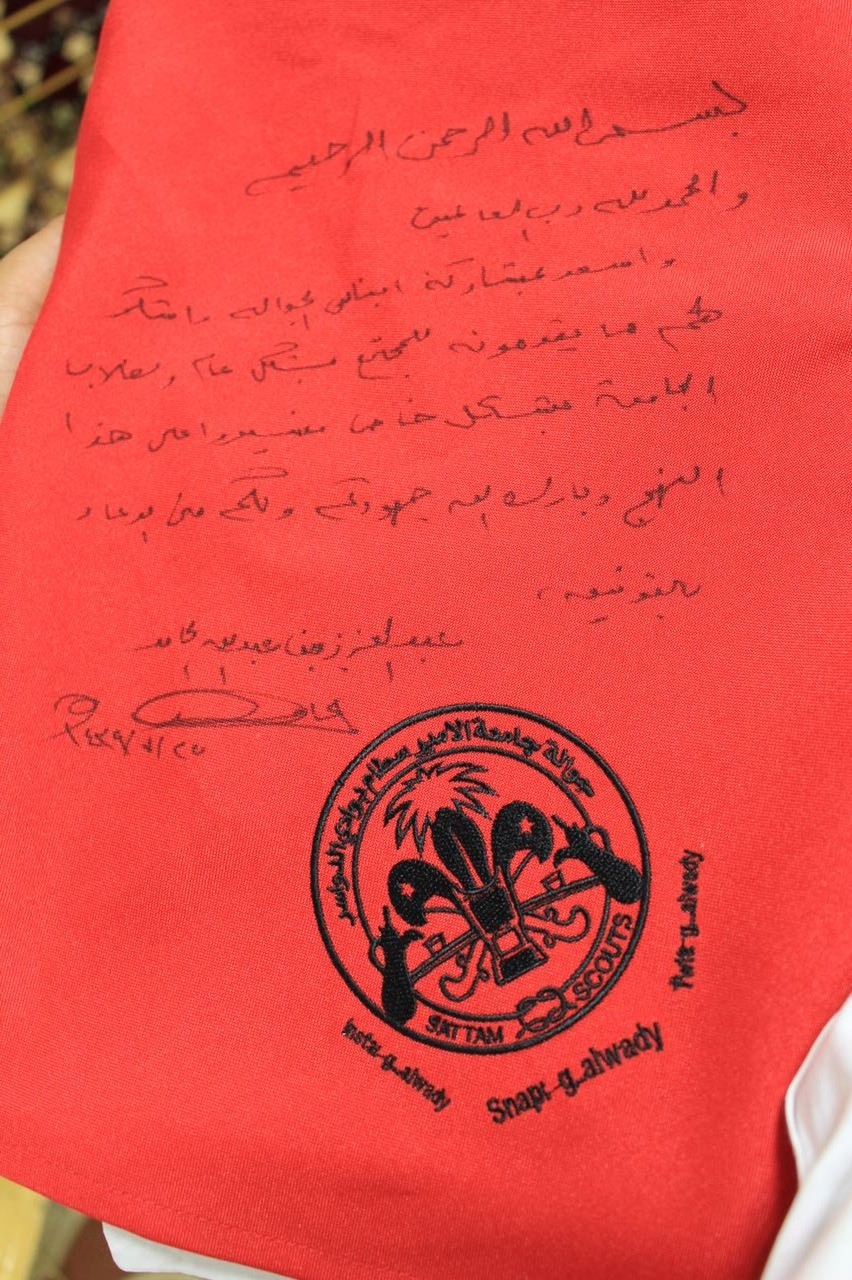 بسم الله الرحمن الرحيم
والحمد لله رب العالمين
واسعد بمشاركة ابنائي الجواله واشكر
لهم ما يقدمونه للمجتمع بشكل عام ولطلاب
الجامعة بشكل خاص فسيروا على هذا
النهج وبارك الله جهودكم ولكم مني الدعاء
بالتوفيق،
عبدالعزيز بن عبدالله الحامد
١٤٣٩/٧/٢٥
جوالة جامعة الامير سطام بوادي الدواسر
SATTAM SCOUTS
Insta: g_alwady
Snap: g_alwady
Twta: g_alwady